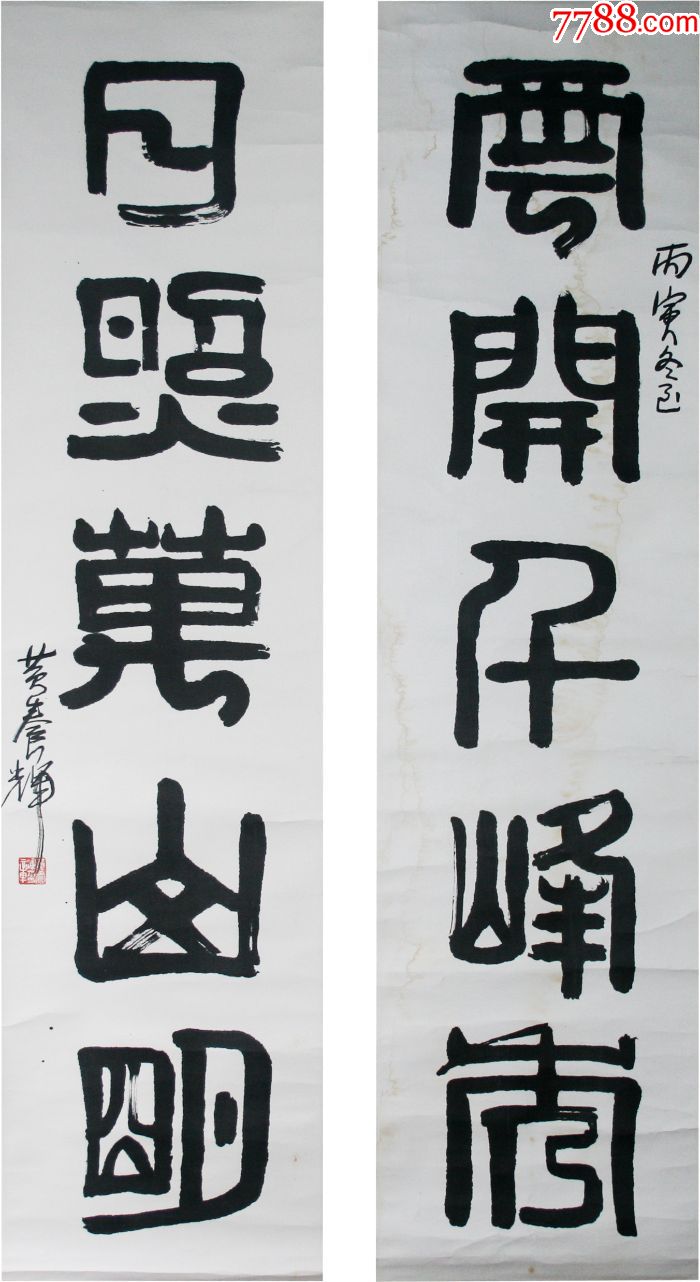 7788.com
雲開千峰秀
丙寅冬至
日照萬山明
黄養輝